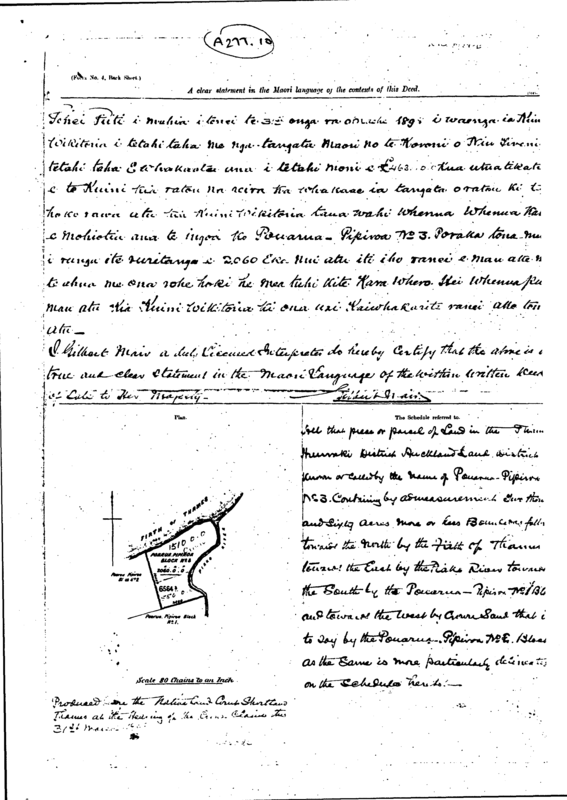 A277.10
No. 4, Back Sheet.)
A clear statement in the Maori language of the contents of this Deed.
i tenei te ra 189 i waenga ia Kuini
Wikitoria i tetahi taha me nga tangata Maori no te Koroni o Niu Tireni
tetahi taha E Whakaatu ana i tetahi moni £463
e te Kuini kia ratou na reira ka whakaae ia tangata o ratou ki t
hoko rawa atu kia Kuini Wikitoria taua wahi Whenua
e Mohiotia ana te ingoa ko Pouarua - Pipiroa No 3. Poraka tona
i runga i te ruritanga e 2,060 Eka Nui atu iti iho ranei e mau ake
te ahua me ona rohe hoki he mea tuhi ki te Kara Whero Hei Whenua
mau atu kia Kuini Wikitoria ki ona uri Kaiwhakarite ranei ake ton
atu
I Gilbert Mair a duly Licensed Interpreter do hereby Certify that the above is a
true and clear Statement in the Maori Language of the Within Written Deed
of Sale to Her Majesty.
Gilbert Mair
Plan.
FIRTH OF THAMES
1510 0.0
POARUA PIPIROA
BLOCK No 3
2060. 0. 0
6564
PIAKO RIVER
Poarua Pipiroa Block
No 1.
Scale 80 Chains to an Inch
Produced before the Native Land Court Shortland
Thames at the Hearing of the Crown Claims this
31st March
The Schedule referred to.
All that piece or parcel of Land in the Thames
Hauraki District Auckland Land District
known or called by the name of Pouarua - Pipiroa
No 3. Containing by admeasurement Two thou
and Sixty acres more or less Bounded
towards the North by the Firth of Thames
towards the East by the Piako River towards
the South by the Pouarua - Pipiroa No 1 Blo
and towards the West by Crown Land that i
to say by the Pouarua - Pipiroa No 2. Block
as the same is more particularly delineated
on the Schedule hereto:-